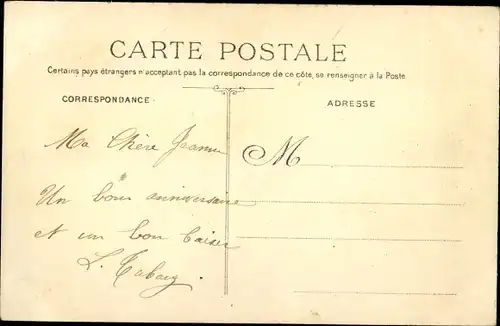 CARTE POSTALE
Certains pays étrangers n'acceptant pas la correspondance de ce côté, se renseigner à la Poste
CORRESPONDANCE
ADRESSE
M
Ma Chère Jeanne
Un bon anniversaire
et un bon baiser